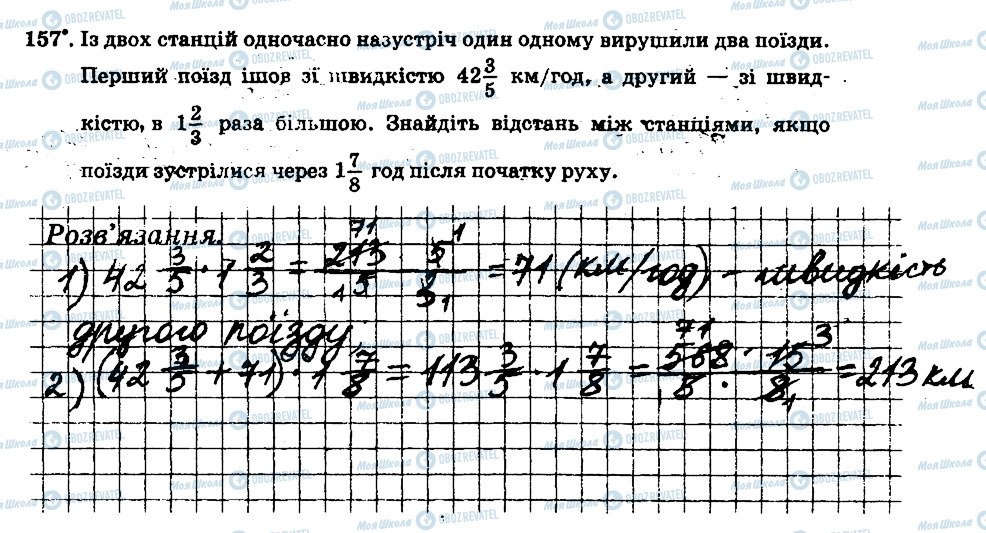 157°. Із двох станцій одночасно назустріч один одному вирушили два поїзди.
Перший поїзд ішов зі швидкістю 42 3/5 км/год, а другий — зі швид-
кістю, в 1 2/3 раза більшою. Знайдіть відстань між станціями, якщо
поїзди зустрілися через 1 7/8 год після початку руху.
Розв'язання.
1) 42 3/5 · 1 2/3 = 213/5 · 5/3 = 71 (км/год) – швидкість
другого поїзду
2) (42 3/5 + 71) · 1 7/8 = 113 3/5 · 1 7/8 = 568/5 · 15/8 = 213 км.